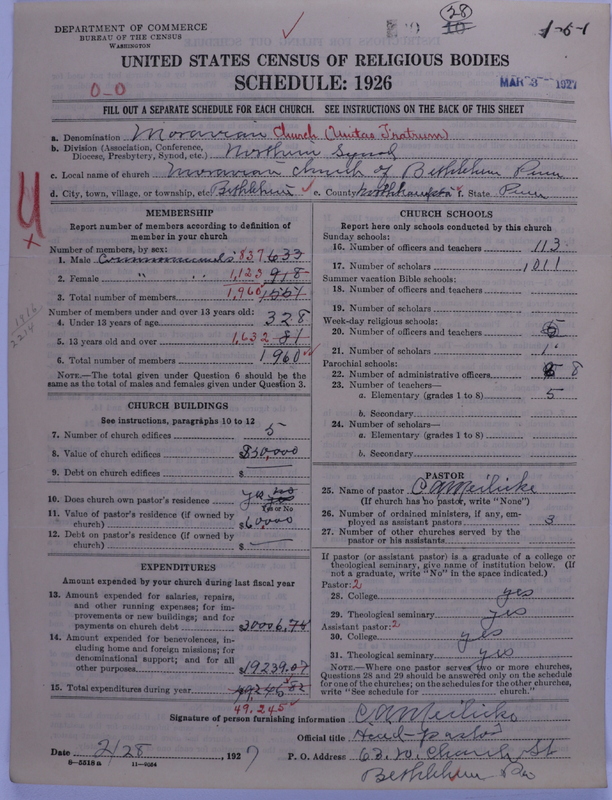 DEPARTMENT OF COMMERCE
BUREAU OF THE CENSUS
WASHINGTON
28
10
1-6-1
UNITED STATES CENSUS OF RELIGIOUS BODIES
SCHEDULE: 1926
0-0
MAR 3 1927
FILL OUT A SEPARATE SCHEDULE FOR EACH CHURCH. SEE INSTRUCTIONS ON THE BACK OF THIS SHEET
a. Denomination Moravian Church (Unitas Fratrum)
b. Division (Association, Conference, Diocese, Presbytery, Synod, etc.) Northern Synod
c. Local name of church Moravian Church of Bethlehem Penn
d. City, town, village, or township, etc. Bethlehem e. County Northampton f. State Penn
MEMBERSHIP
Report number of members according to definition of
member in your church
Number of members, by sex:
1. Male Communicants 837 633
2. Female " " 1,123 918
3. Total number of members 1,960 1,551
Number of members under and over 13 years old:
4. Under 13 years of age 328
5. 13 years old and over 1,632 81
6. Total number of members 1960
NOTE.—The total given under Question 6 should be the
same as the total of males and females given under Question 3.
CHURCH BUILDINGS
See instructions, paragraphs 10 to 12
7. Number of church edifices 5
8. Value of church edifices $850,000
9. Debt on church edifices $
10. Does church own pastor's residence yes no
Yes or No
11. Value of pastor's residence (if owned by
church) $60000
12. Debt on pastor's residence (if owned by
church) $
EXPENDITURES
Amount expended by your church during last fiscal year
13. Amount expended for salaries, repairs,
and other running expenses; for im-
provements or new buildings; and for
payments on church debt $30006.75
14. Amount expended for benevolences, in-
cluding home and foreign missions; for
denominational support; and for all
other purposes $19239.07
15. Total expenditures during year 49245.82
49,245
CHURCH SCHOOLS
Report here only schools conducted by this church
Sunday schools:
16. Number of officers and teachers 113
17. Number of scholars 1011
Summer vacation Bible schools:
18. Number of officers and teachers
19. Number of scholars
Week-day religious schools:
20. Number of officers and teachers
21. Number of scholars
Parochial schools:
22. Number of administrative officers 8
23. Number of teachers—
a. Elementary (grades 1 to 8) 5
b. Secondary
24. Number of scholars—
a. Elementary (grades 1 to 8)
b. Secondary
PASTOR
25. Name of pastor C A Meilicke
(If church has no pastor, write "None")
26. Number of ordained ministers, if any, em-
ployed as assistant pastors 3
27. Number of other churches served by the
pastor or his assistants
If pastor (or assistant pastor) is a graduate of a college or
theological seminary, give name of institution below. (If
not a graduate, write "No" in the space indicated.)
Pastor: 2
28. College yes
29. Theological seminary yes
Assistant pastor: 2
30. College yes
31. Theological seminary yes
NOTE.—Where one pastor served two or more churches,
Questions 28 and 29 should be answered only on the schedule
for one of the churches; on the schedules for the other churches,
write "See schedule for church."
Signature of person furnishing information C A Meilicke
Official title Head-pastor
Date 2/28, 1927 P. O. Address 63 W. Church St
Bethlehem Pa
8-5518 a 11-9064